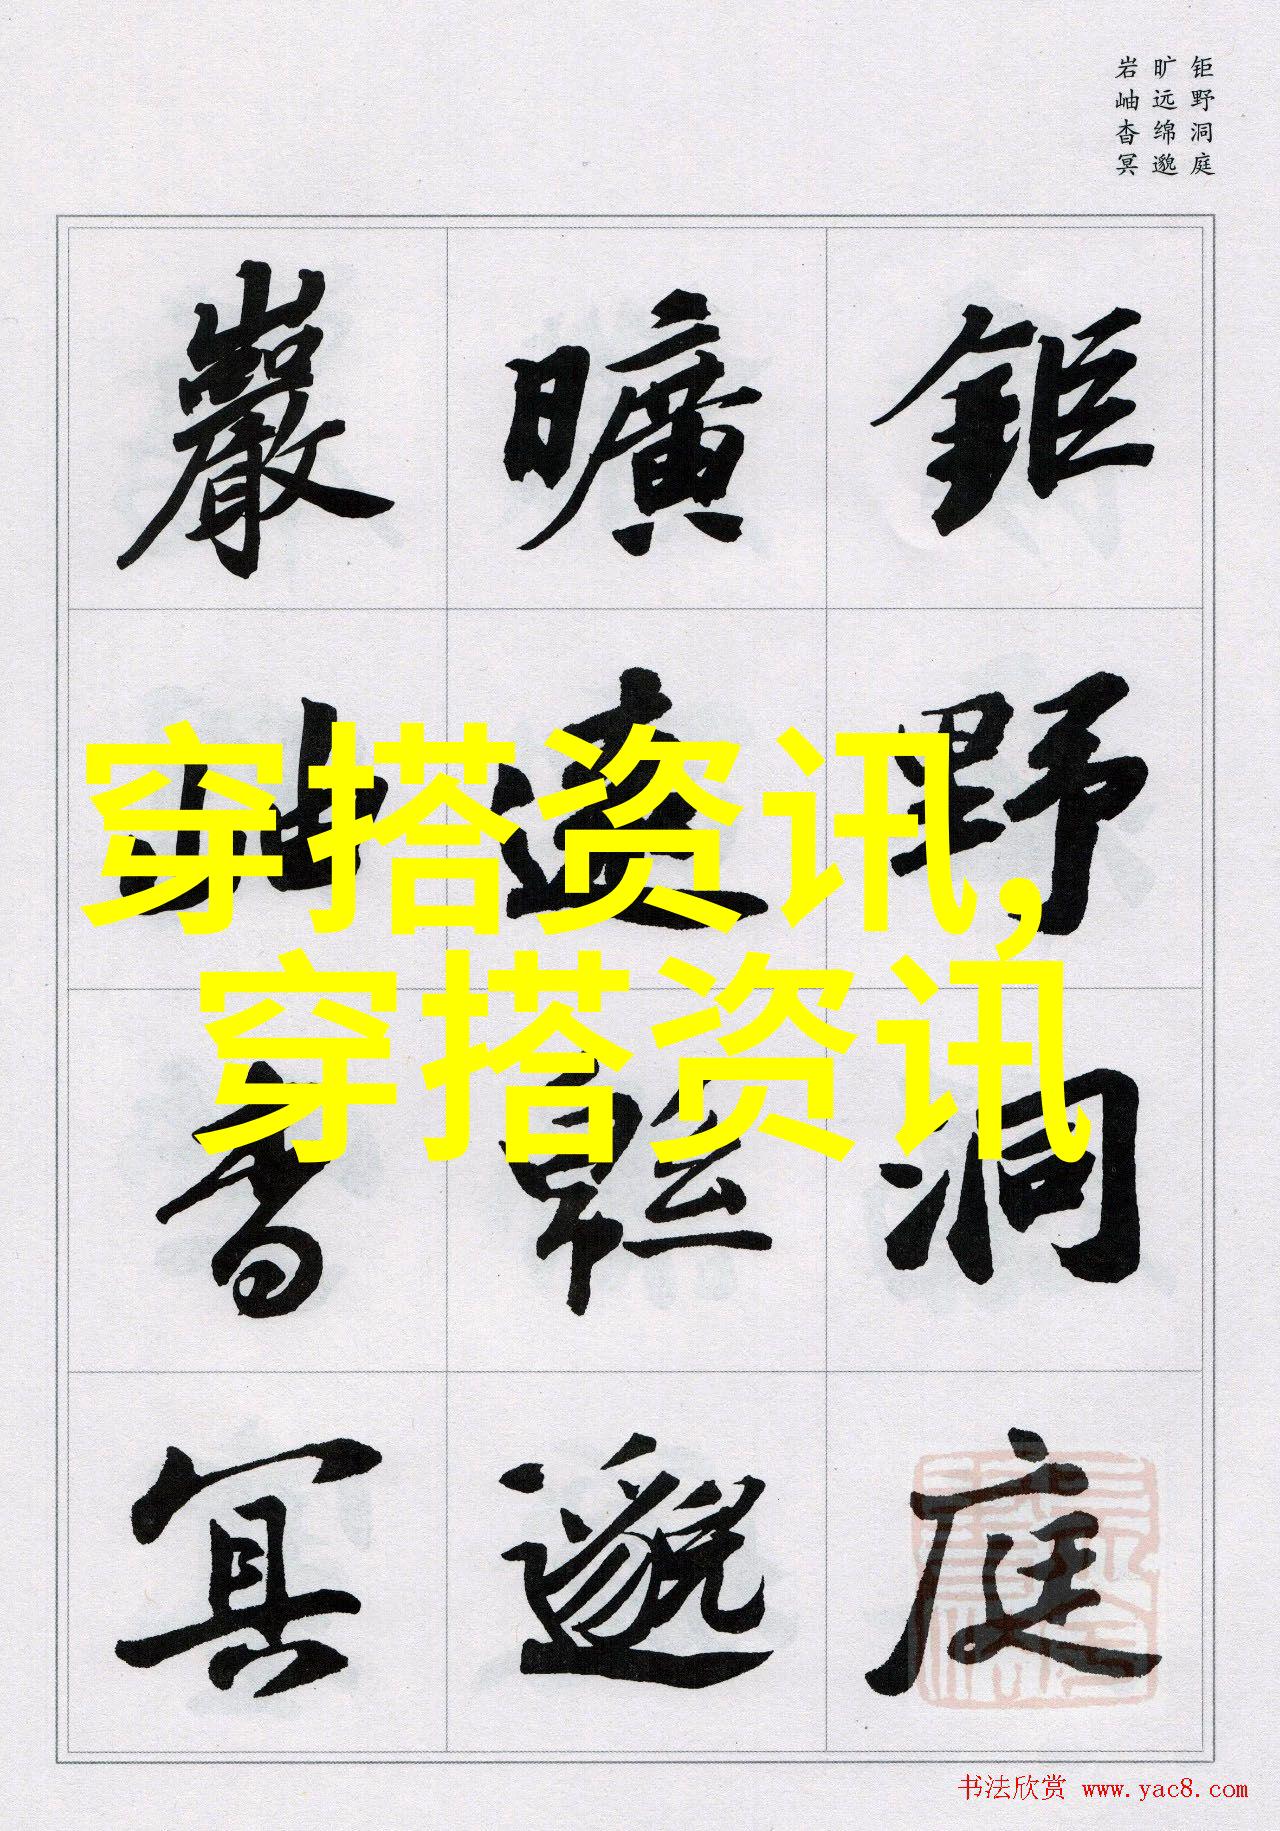 岩岫杳冥
旷远绵邈
钜野洞庭
巖 曠 鉅
岫 遠 野
杳 緜 洞
冥 邈 庭
穿搭资讯,
穿搭资讯
书法欣赏 www.yac8.com